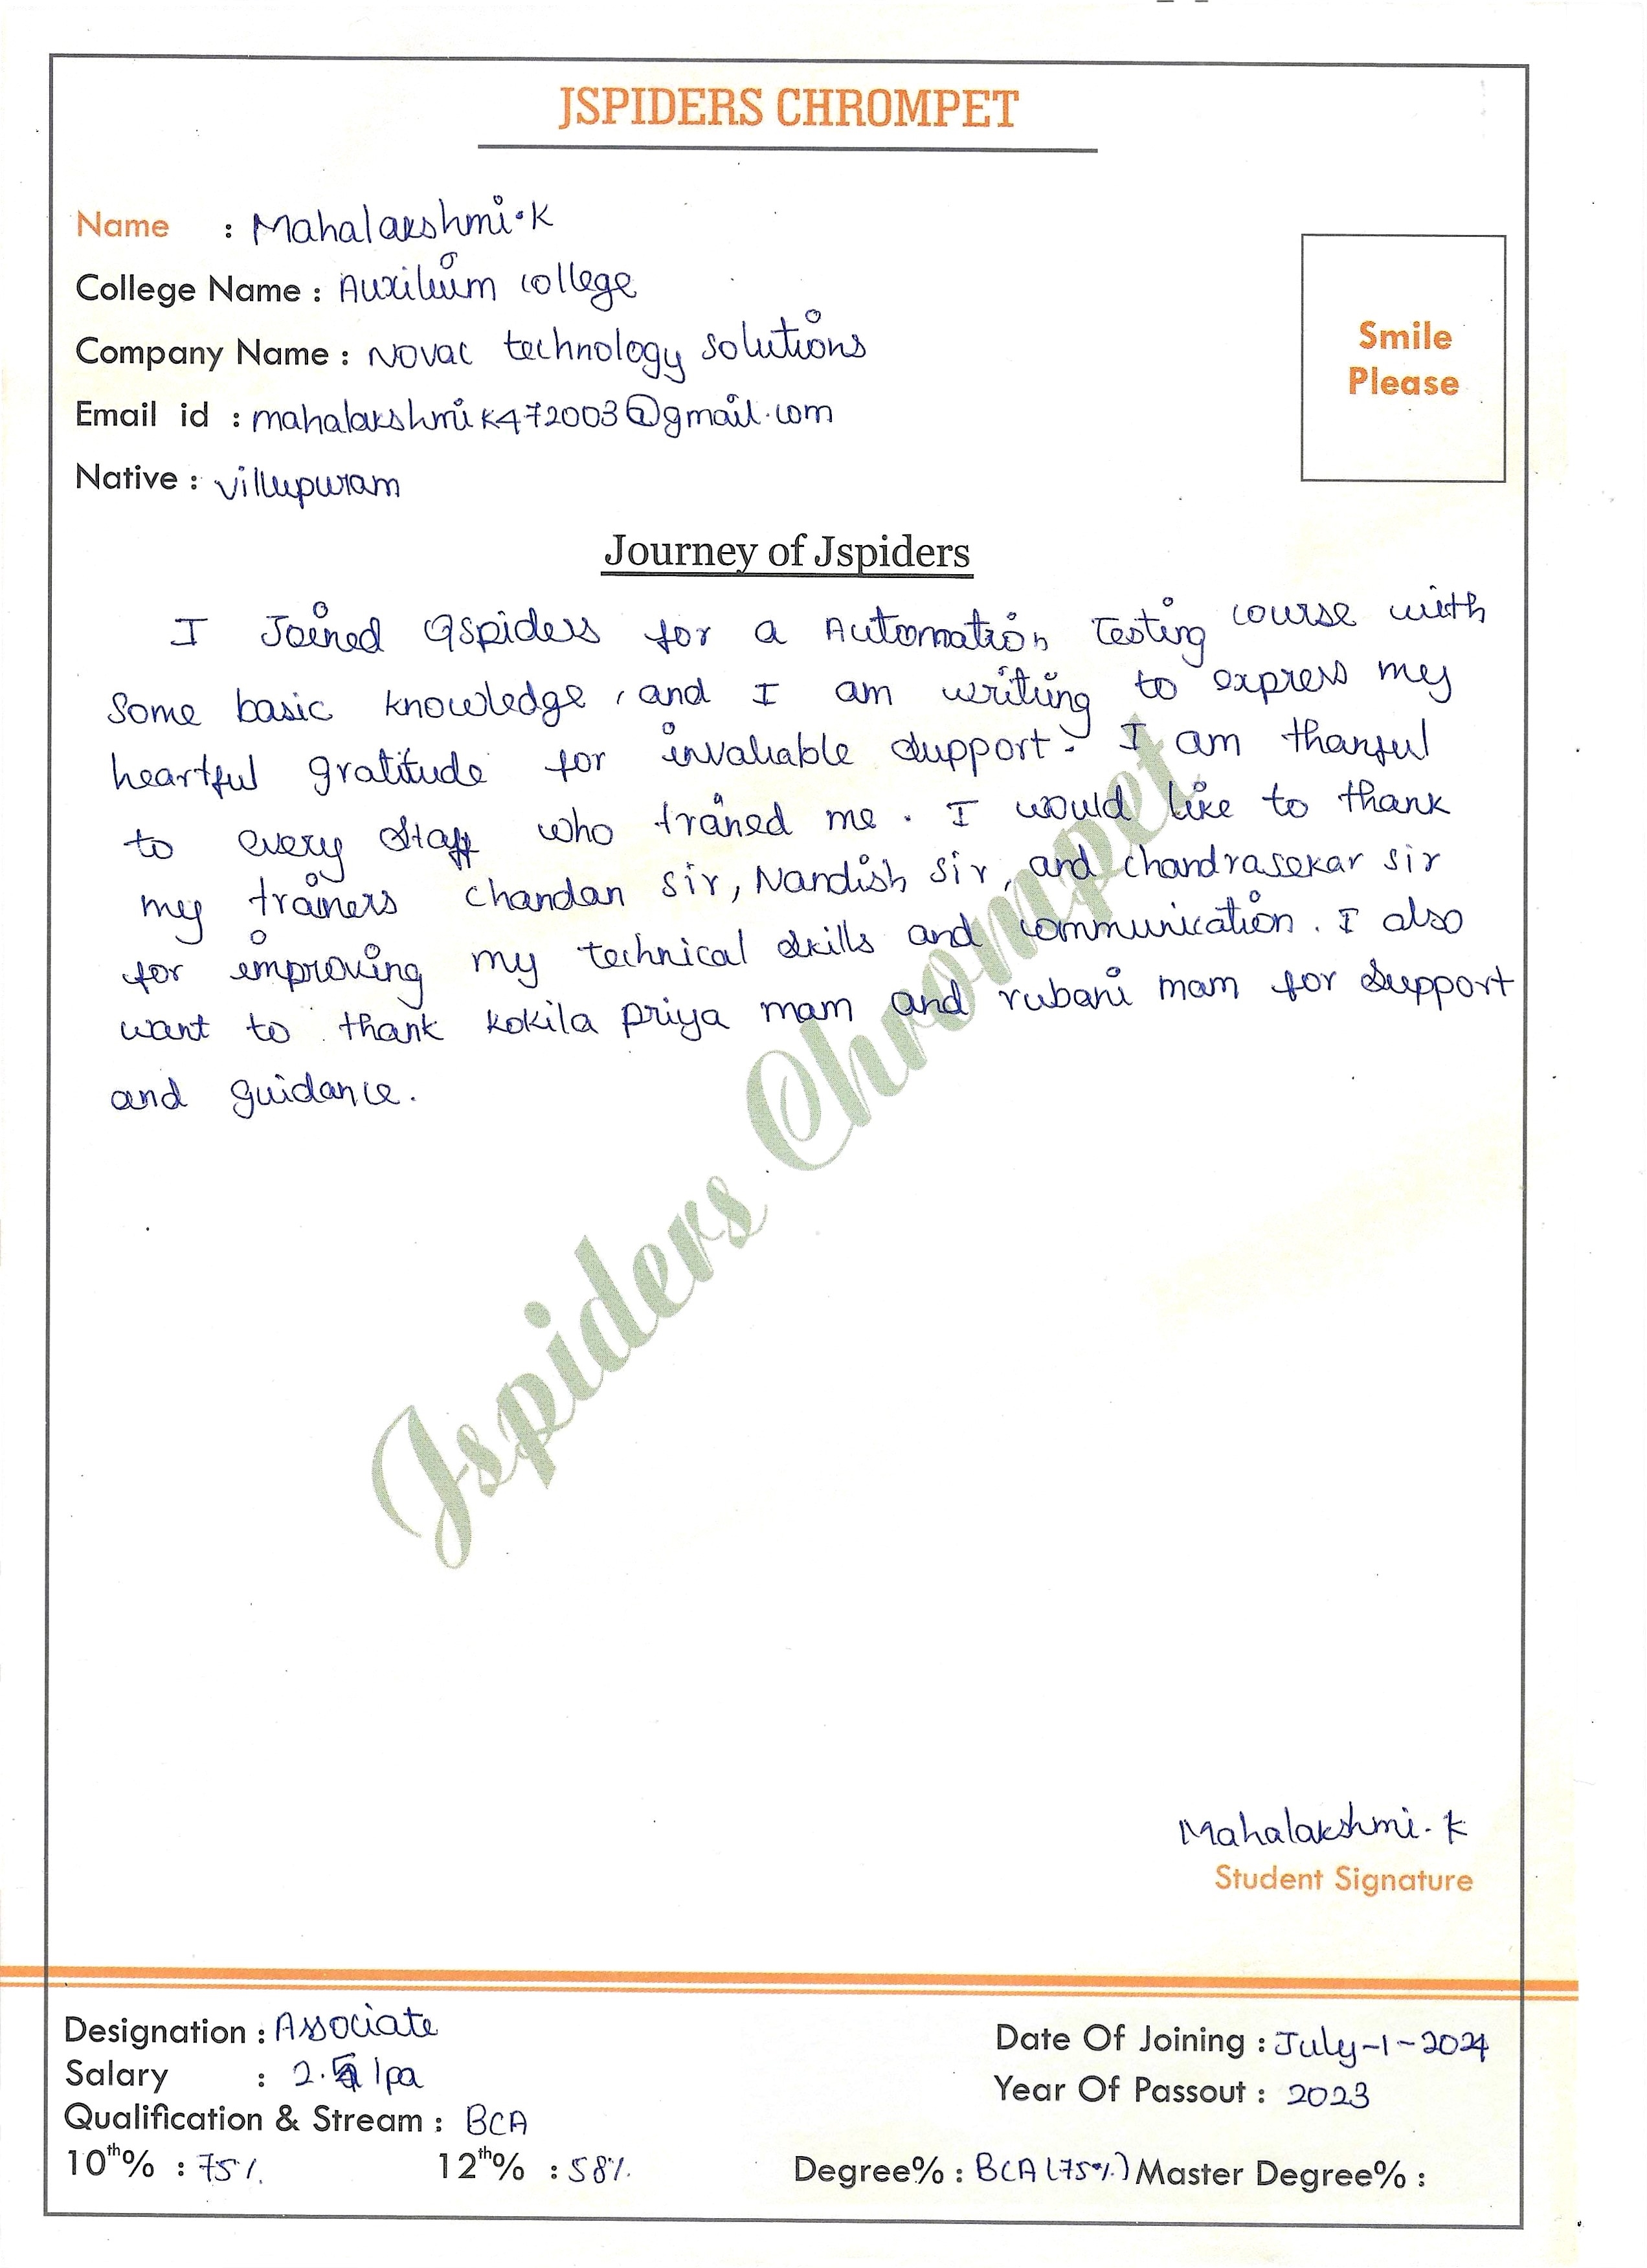 JSPIDERS CHROMPET
Name : Mahalakshmi.K
College Name : Auxilium college
Company Name : Novac technology solutions
Email id : mahalakshmik472003@gmail.com
Native : villupuram
Smile
Please
Journey of Jspiders
I Joined Qspiders for a Automation Testing course with
Some basic knowledge, and I am writing to express my
heartful gratitude for invaliable support. I am thankful
to every staff who trained me. I would like to thank
my trainers chandan sir, Nandish sir, and chandrasekar sir
for improving my technical skills and communication. I also
want to thank kokila priya mam and rubani mam for support
and guidance.
Jspiders Chrompet
Mahalakshmi.K
Student Signature
Designation : Associate
Date Of Joining : July-1-2024
Salary : lpa
Year Of Passout : 2023
Qualification & Stream : BCA
10th% : 75% 12th% : 58% Degree% : BCA (75%) Master Degree% :